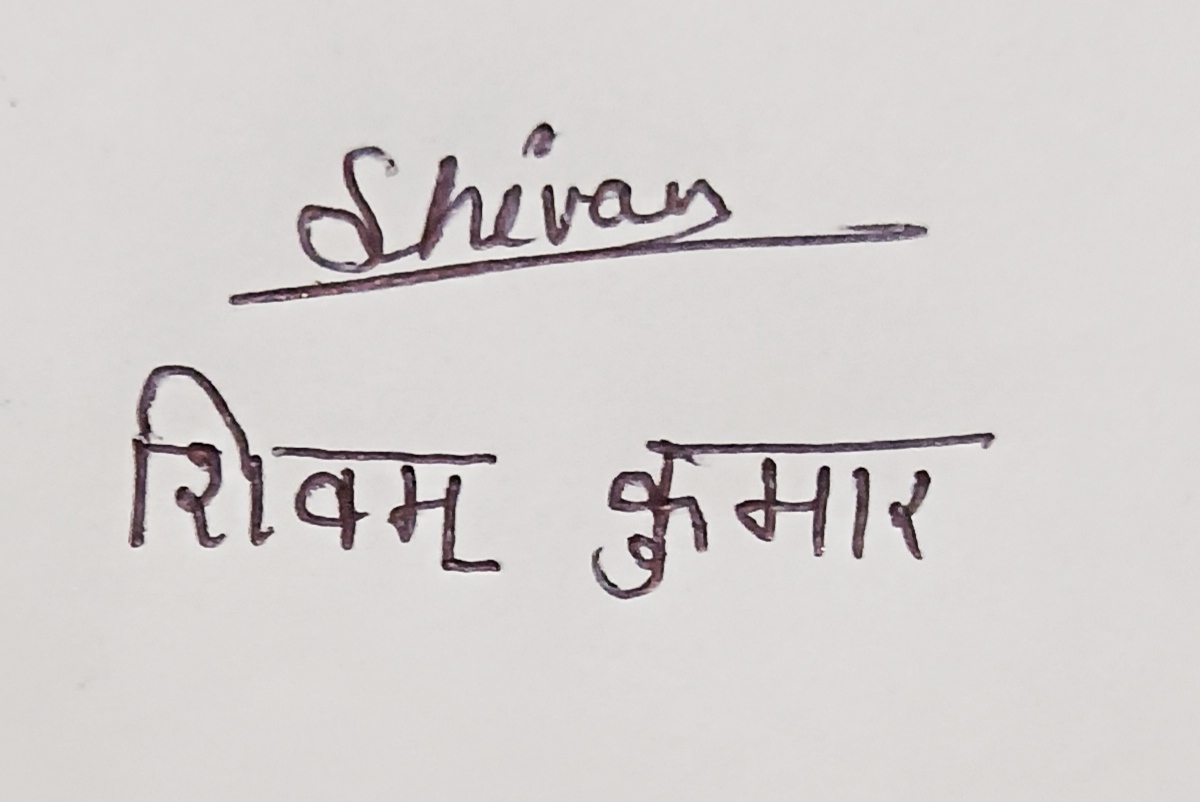 Shivam
शिवम् कुमार